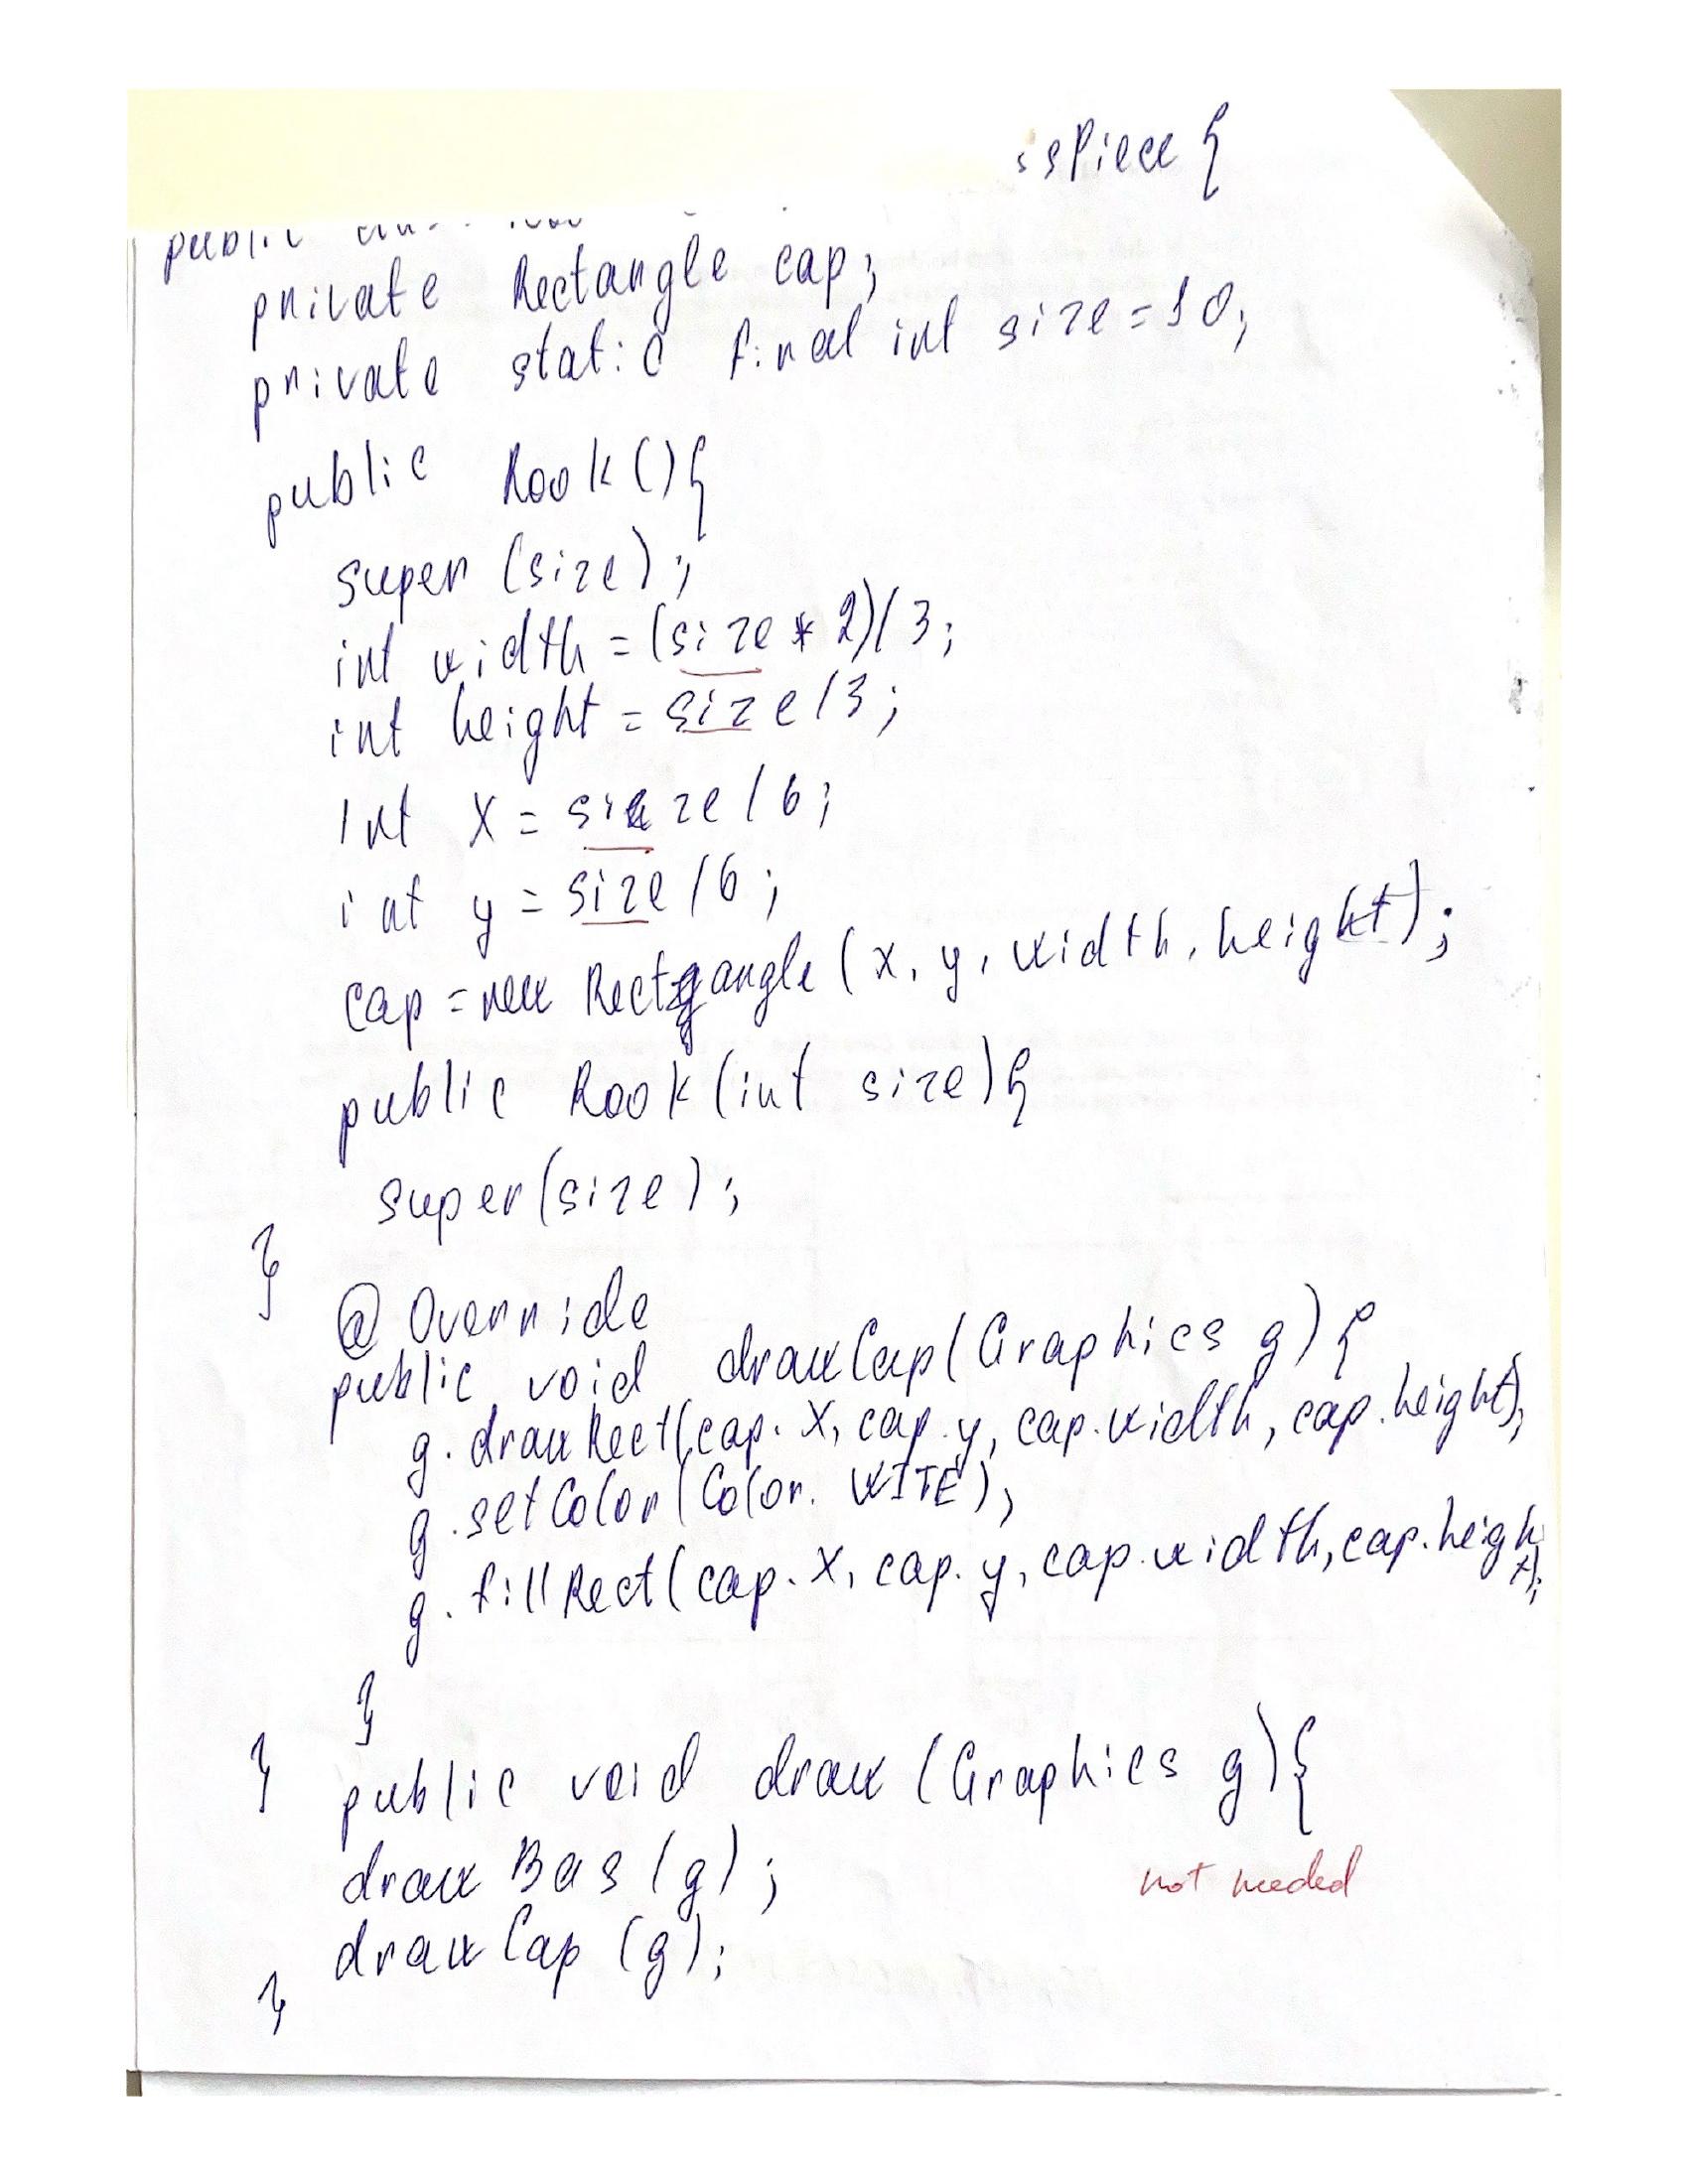 ssPiece {
public
private Rectangle cap;
private static final int size = 10;
public Rook(){
super (size);
int width = (size * 2)/3;
int height = size/3;
int x = size/6;
int y = size/6;
cap = new Rectangle (x, y, width, height);
public Rook (int size){
super(size);
}
@Override
public void drawCap(Graphics g) {
g.drawRect(cap.x, cap.y, cap.width, cap.height);
g.setColor(Color.WITE);
g.fillRect(cap.x, cap.y, cap.width, cap.height);
}
} public void draw (Graphics g){
drawBas (g);
not needed
drawCap (g);
}